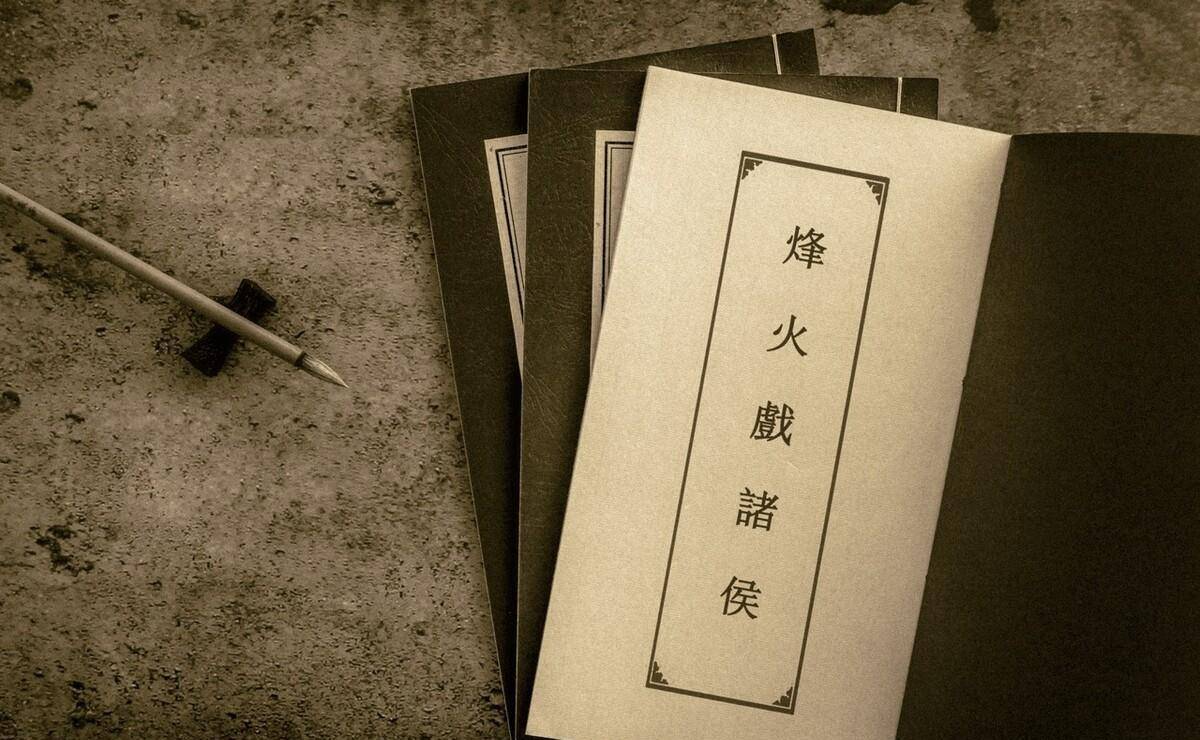 烽火戲諸侯